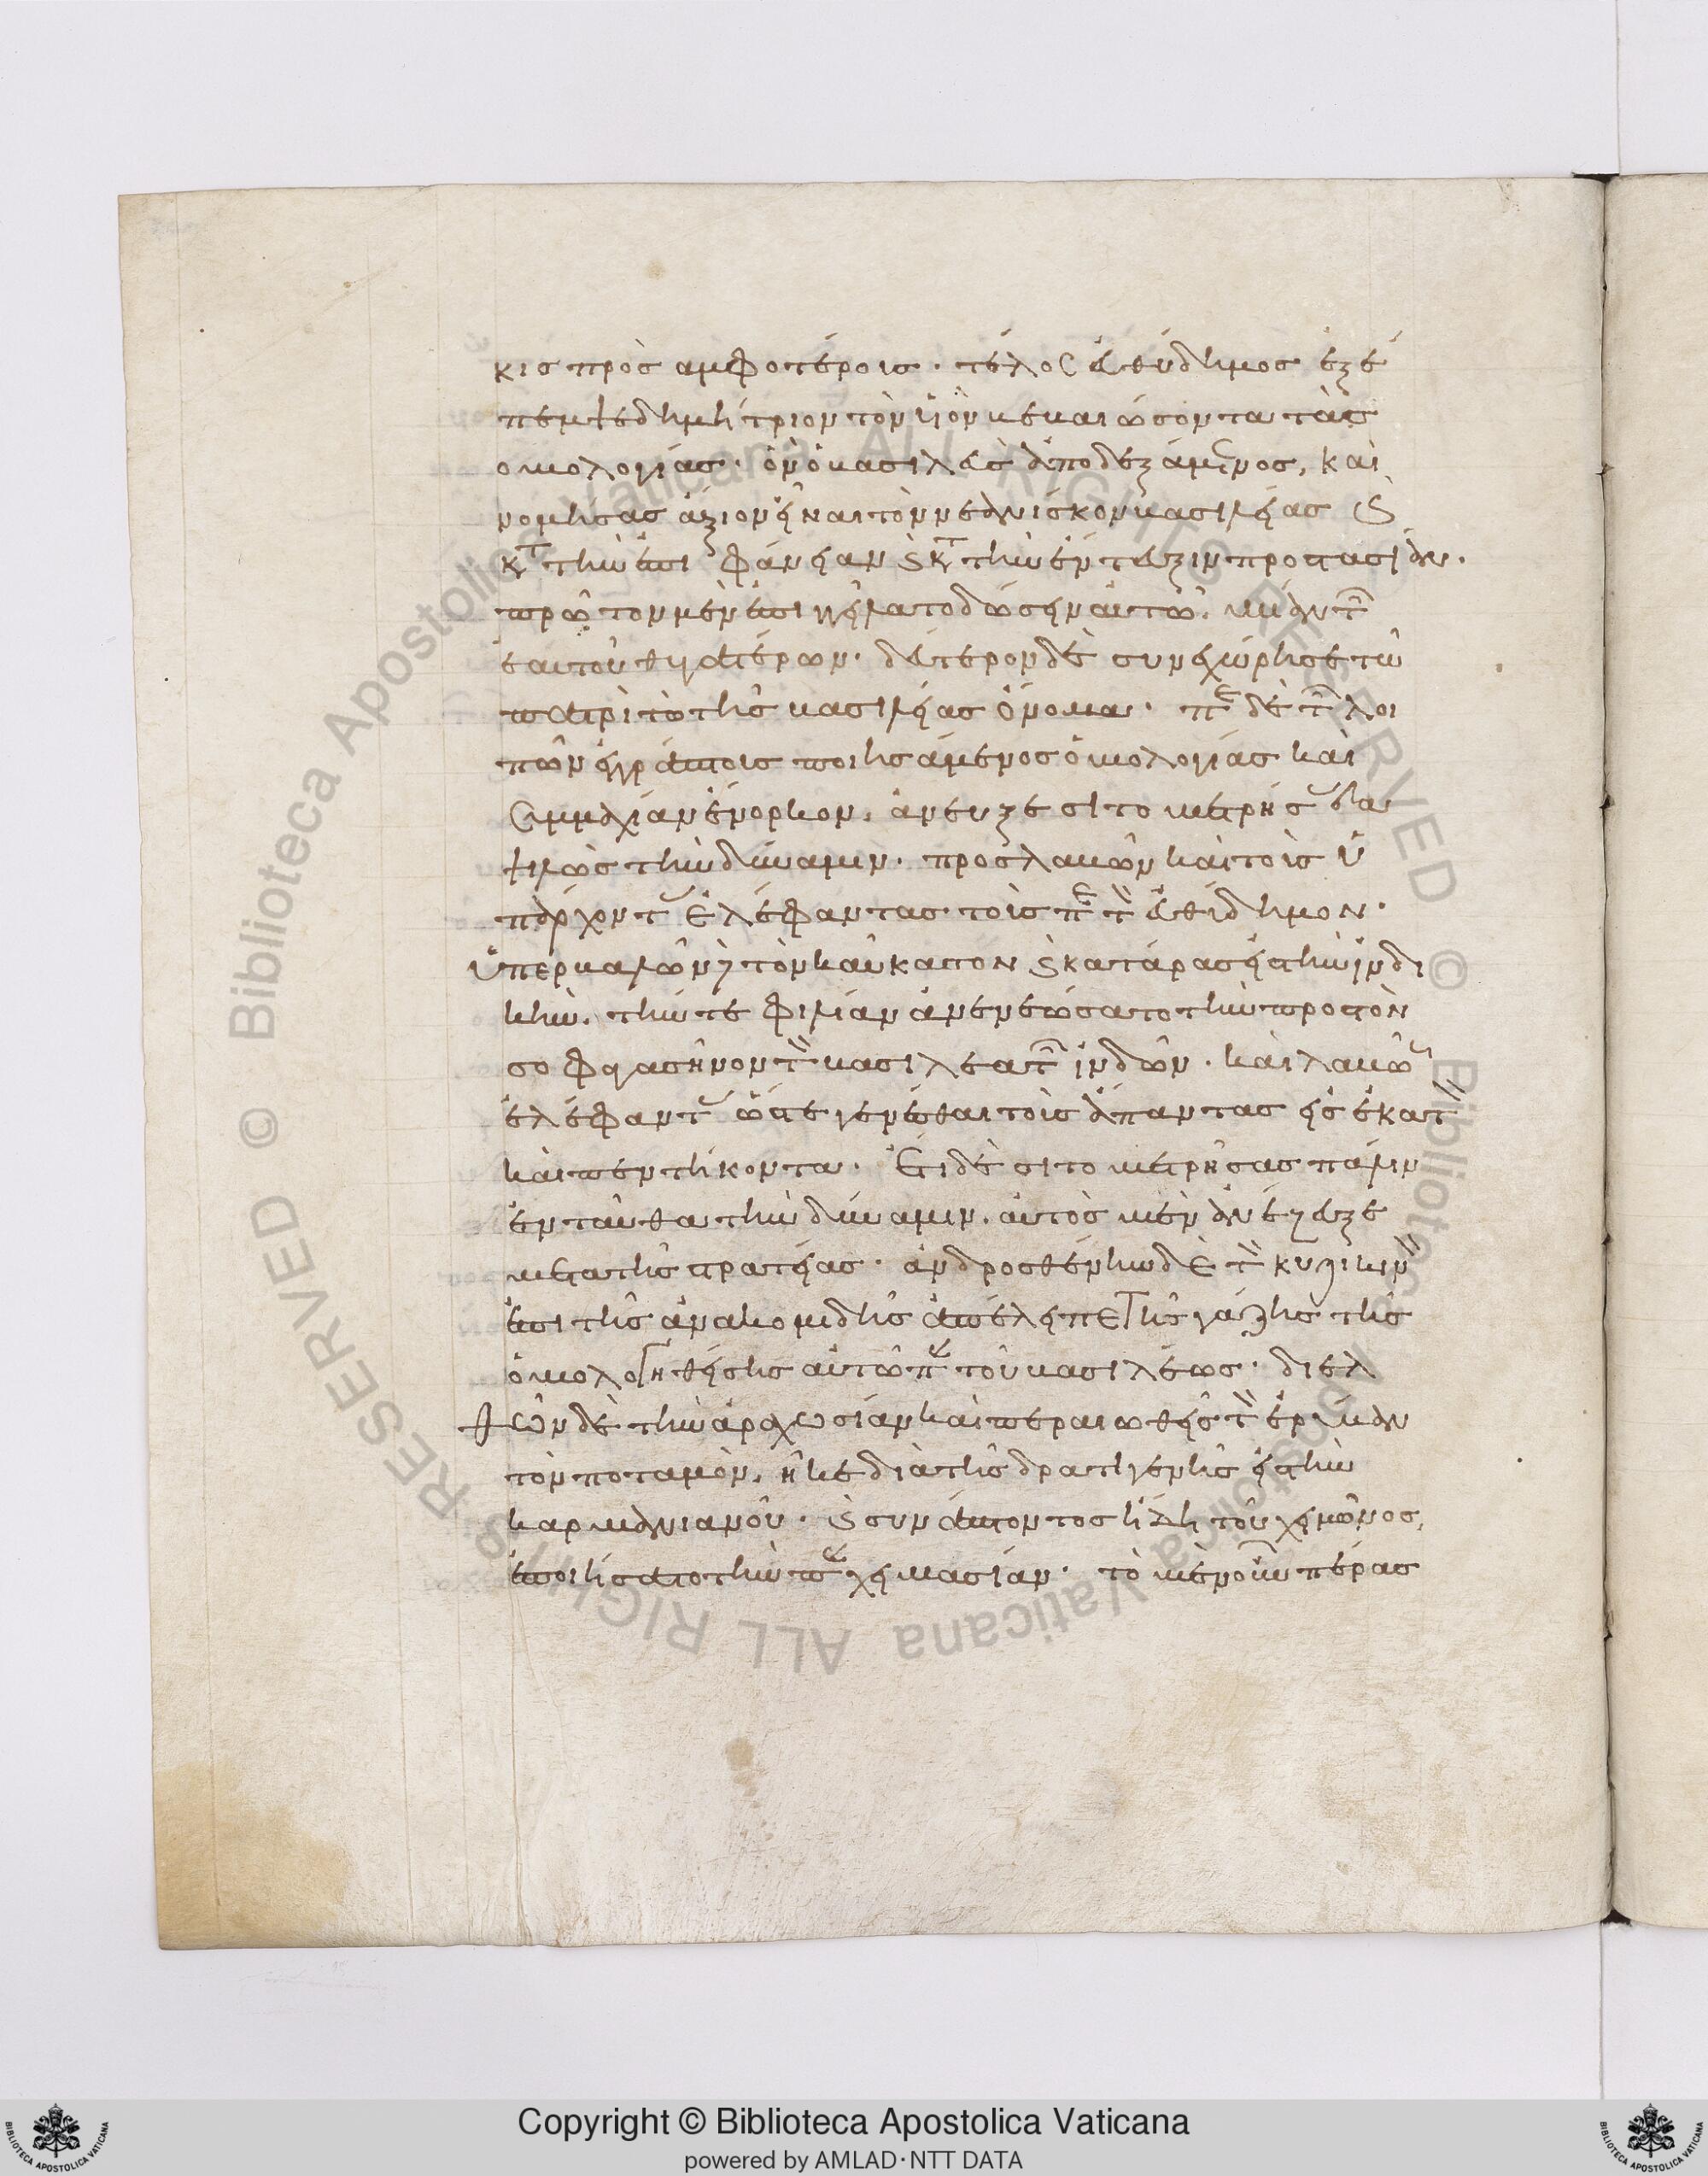 κις πρὸς ἀμφοτέροις· τέλος εὐθύδημος ἐξέ
πεμψε δημήτριον τὸν υἱὸν βεβαιώσοντα τὰς
ὁμολογίας· ὃν ὁ βασιλεὺς ἀποδεξάμενος, καὶ
νομίσας ἄξιον εἶναι τὸν νεανίσκον βασιλείας καὶ
κατὰ τὴν ἐπιφάνειαν καὶ κατὰ τὴν ἔντευξιν προστασίαν·
πρῶτον μὲν ἐπηγγείλατο δώσειν αὐτῷ, μίαν τῶν
ἑαυτοῦ θυγατέρων· δεύτερον δὲ συνεχώρησε τῷ
πατρὶ τὸ τῆς βασιλείας ὄνομα· περὶ δὲ τῶν λοι
πῶν ἐγγράπτους ποιησάμενος ὁμολογίας καὶ
συμμαχίαν ἔνορκον, ἀνέζευξε σιτομετρήσας δα
ψιλῶς τὴν δύναμιν· προσλαβὼν καὶ τοὺς ὑ
πάρχοντας ἐλέφαντας τοῖς περὶ τὸν εὐθύδημον·
ὑπερβαλὼν δὲ τὸν καύκασον καὶ κατάρας εἰς τὴν ἰνδι
κήν, τήν τε φιλίαν ἀνενεώσατο τὴν πρὸς τὸν
σοφαγασῆνον τὸν βασιλέα τῶν ἰνδῶν· καὶ λαβὼν
ἐλέφαντας ὥστε γενέσθαι τοὺς ἅπαντας εἰς ἑκατὸν
καὶ πεντήκοντα· ἔτι δὲ σιτομετρήσας πάλιν
ἐνταῦθα τὴν δύναμιν, αὐτὸς μὲν ἀνέζευξε
μετὰ τῆς στρατείας· ἀνδροσθένην δὲ τὸν κυζικηνὸν
ἐπὶ τῆς ἀνακομιδῆς ἀπέλειπε τῆς γάζης τῆς
ὁμολογηθείσης αὐτῷ παρὰ τοῦ βασιλέως· διελ
θὼν δὲ τὴν ἀραχωσίαν καὶ περαιωθεὶς τὸν ἐρύμαν
τον ποταμὸν, ἧκε διὰ τῆς δραγγηνῆς εἰς τὴν
καρμανίαν οὗ· καὶ συνάπτοντος ἤδη τοῦ χειμῶνος,
ἐποιήσατο τὴν παραχειμασίαν· τὸ μὲν οὖν πέρας
Copyright © Biblioteca Apostolica Vaticana
powered by AMLAD·NTT DATA
© Biblioteca Apostolica Vaticana ALL RIGHTS RESERVED © Biblioteca Apostolica Vaticana ALL RIGHTS RESERVED